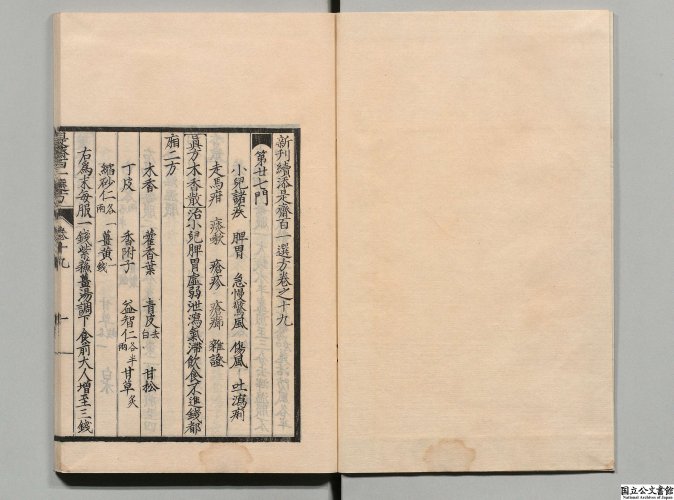 新刊續添是齋百一選方卷之十九
第廿七門
小兒諸疾　脾胃　急慢驚風　傷風　吐瀉痢
走馬疳　痰嗽　瘡疹　瘡癤　雜證
眞方木香散治小兒脾胃虛弱泄瀉氣滯飲食不進錢都
廂二方
木香　藿香葉　青皮去白　甘松
丁皮　香附子　益智仁各半兩　甘草炙
縮砂仁各一兩　薑黃錢
右為末每服一錢紫蘇薑湯調下食前大人增至三錢
卷十九
一
国立公文書館
National Archives of Japan